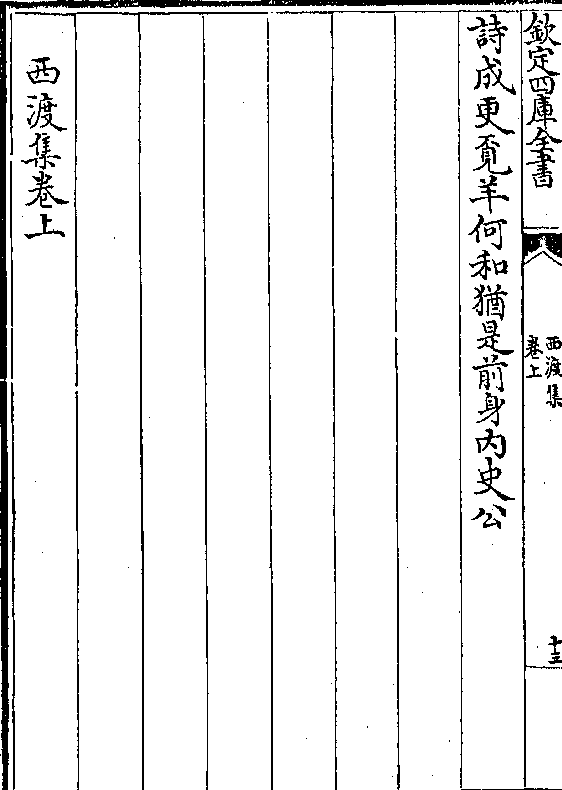 欽定四庫全書
西渡集
卷上
十三
詩成更覔羊何和猶是前身内史公
西渡集卷上